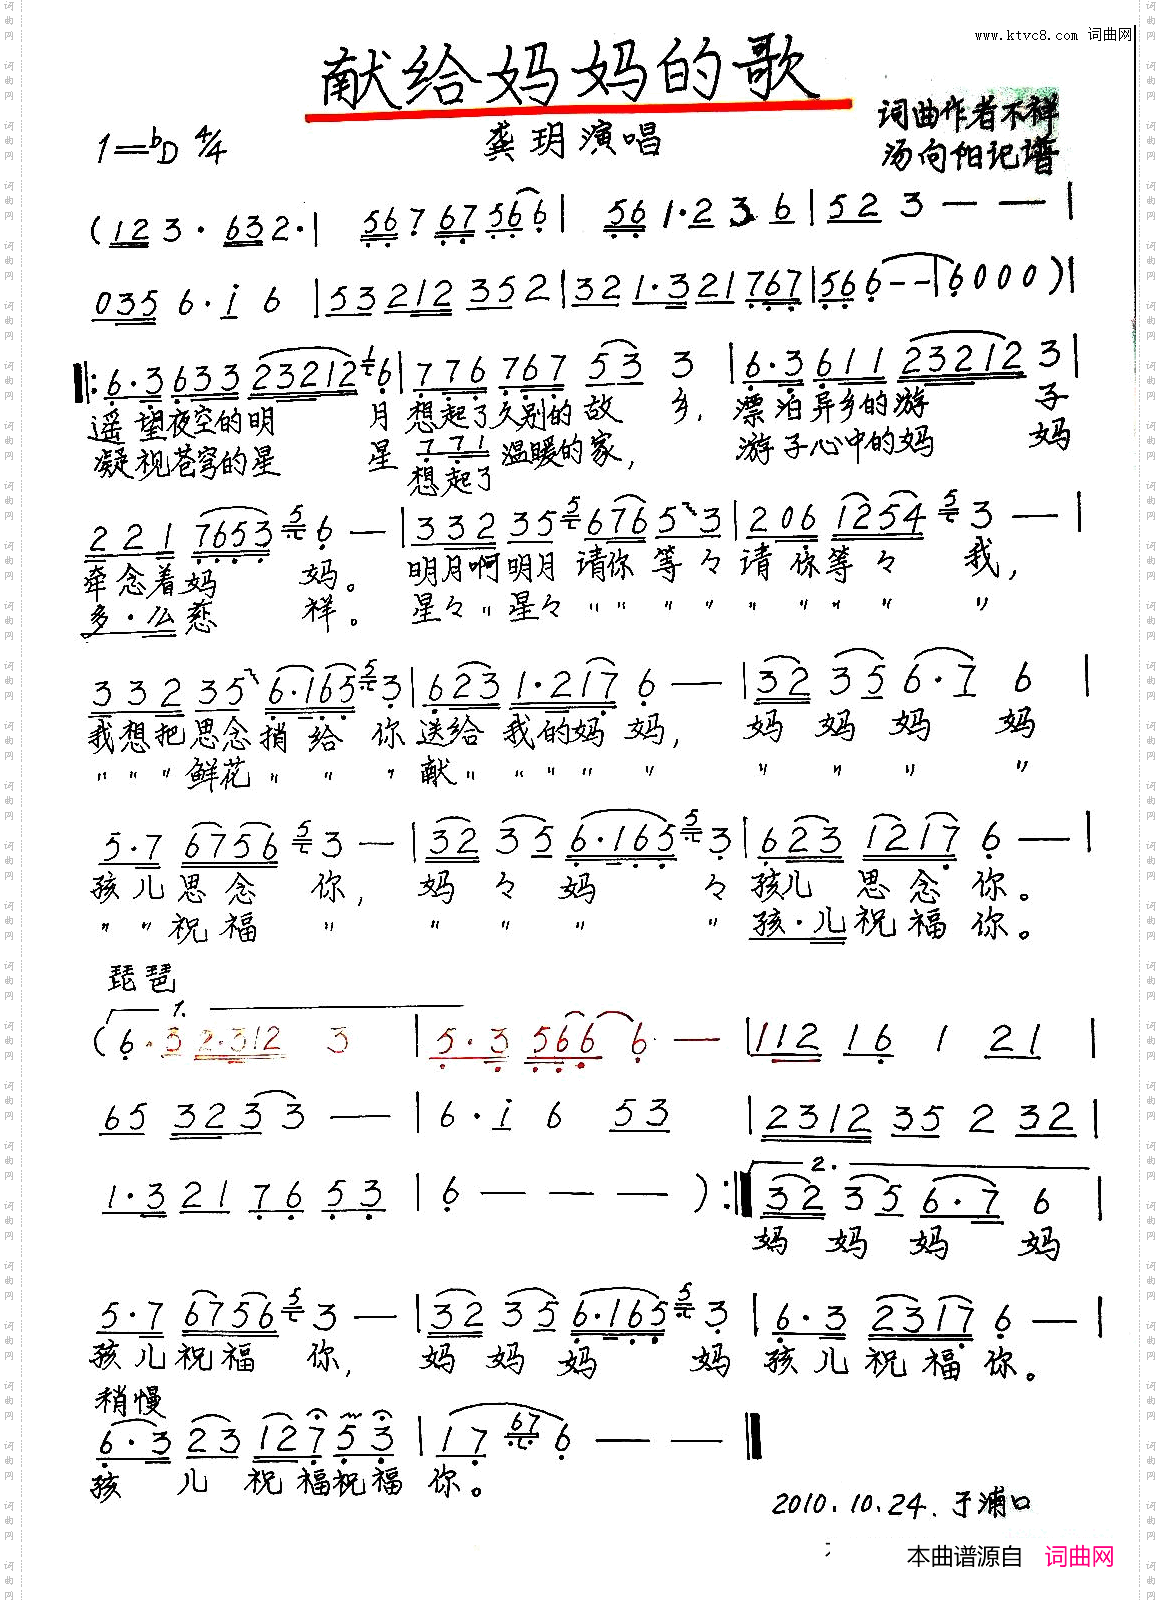 www.ktvc8.com 词曲网
献给妈妈的歌
1=bD 4/4
龚玥演唱
词曲作者不祥
汤向阳记谱
(123· 632·| 567 67566| 561·2 3 6|523 3 — —|
035 6·i 6 |53212 352|321·321767|5666——|6000)|
‖:6·3633 2321216|776 767 53 3 |6·3611 23212 3|
遥望夜空的明 月 想起了久别的故 乡, 漂泊异乡的游 子
凝视苍穹的星 星 771 温暖的家, 游子心中的妈 妈
想起了
221 765356 —|332 35567653|206 125453 —|
牵念着妈 妈。 明月啊明月 请你等々 请你等々 我,
多·么慈 祥。 星々〃星々〃〃〃〃〃〃〃〃〃
332 356·16553|623 1·217 6 —|32 35 6·7 6|
我想把思念捎给 你 送给 我的妈 妈, 妈 妈 妈 妈
〃〃〃鲜花〃〃〃献〃〃〃〃〃〃〃〃〃
5·7 675653 —|32 35 6·16553|623 1217 6 —|
孩儿思念 你, 妈々妈 々孩儿 思念你。
〃〃祝福 〃〃〃〃〃孩·儿祝福你。
琵琶
1.
(6·32·312 3 |5·3 5666 —|112 16 1 21|
65 3233 —|6·i 6 53 |2312 35 2 32|
1·3 21 76 53|6 — — —):‖
2.
32 35 6·7 6|
妈 妈 妈 妈
5·7 675653 —|32 35 6·16553|6·3 2317 6 —|
孩儿祝福 你, 妈 妈 妈 妈 孩儿祝福你。
稍慢
6·3 23 127 53|17 676 — —‖
孩 儿 祝福祝福 你。
2010.10.24.于浦口
本曲谱源自 词曲网